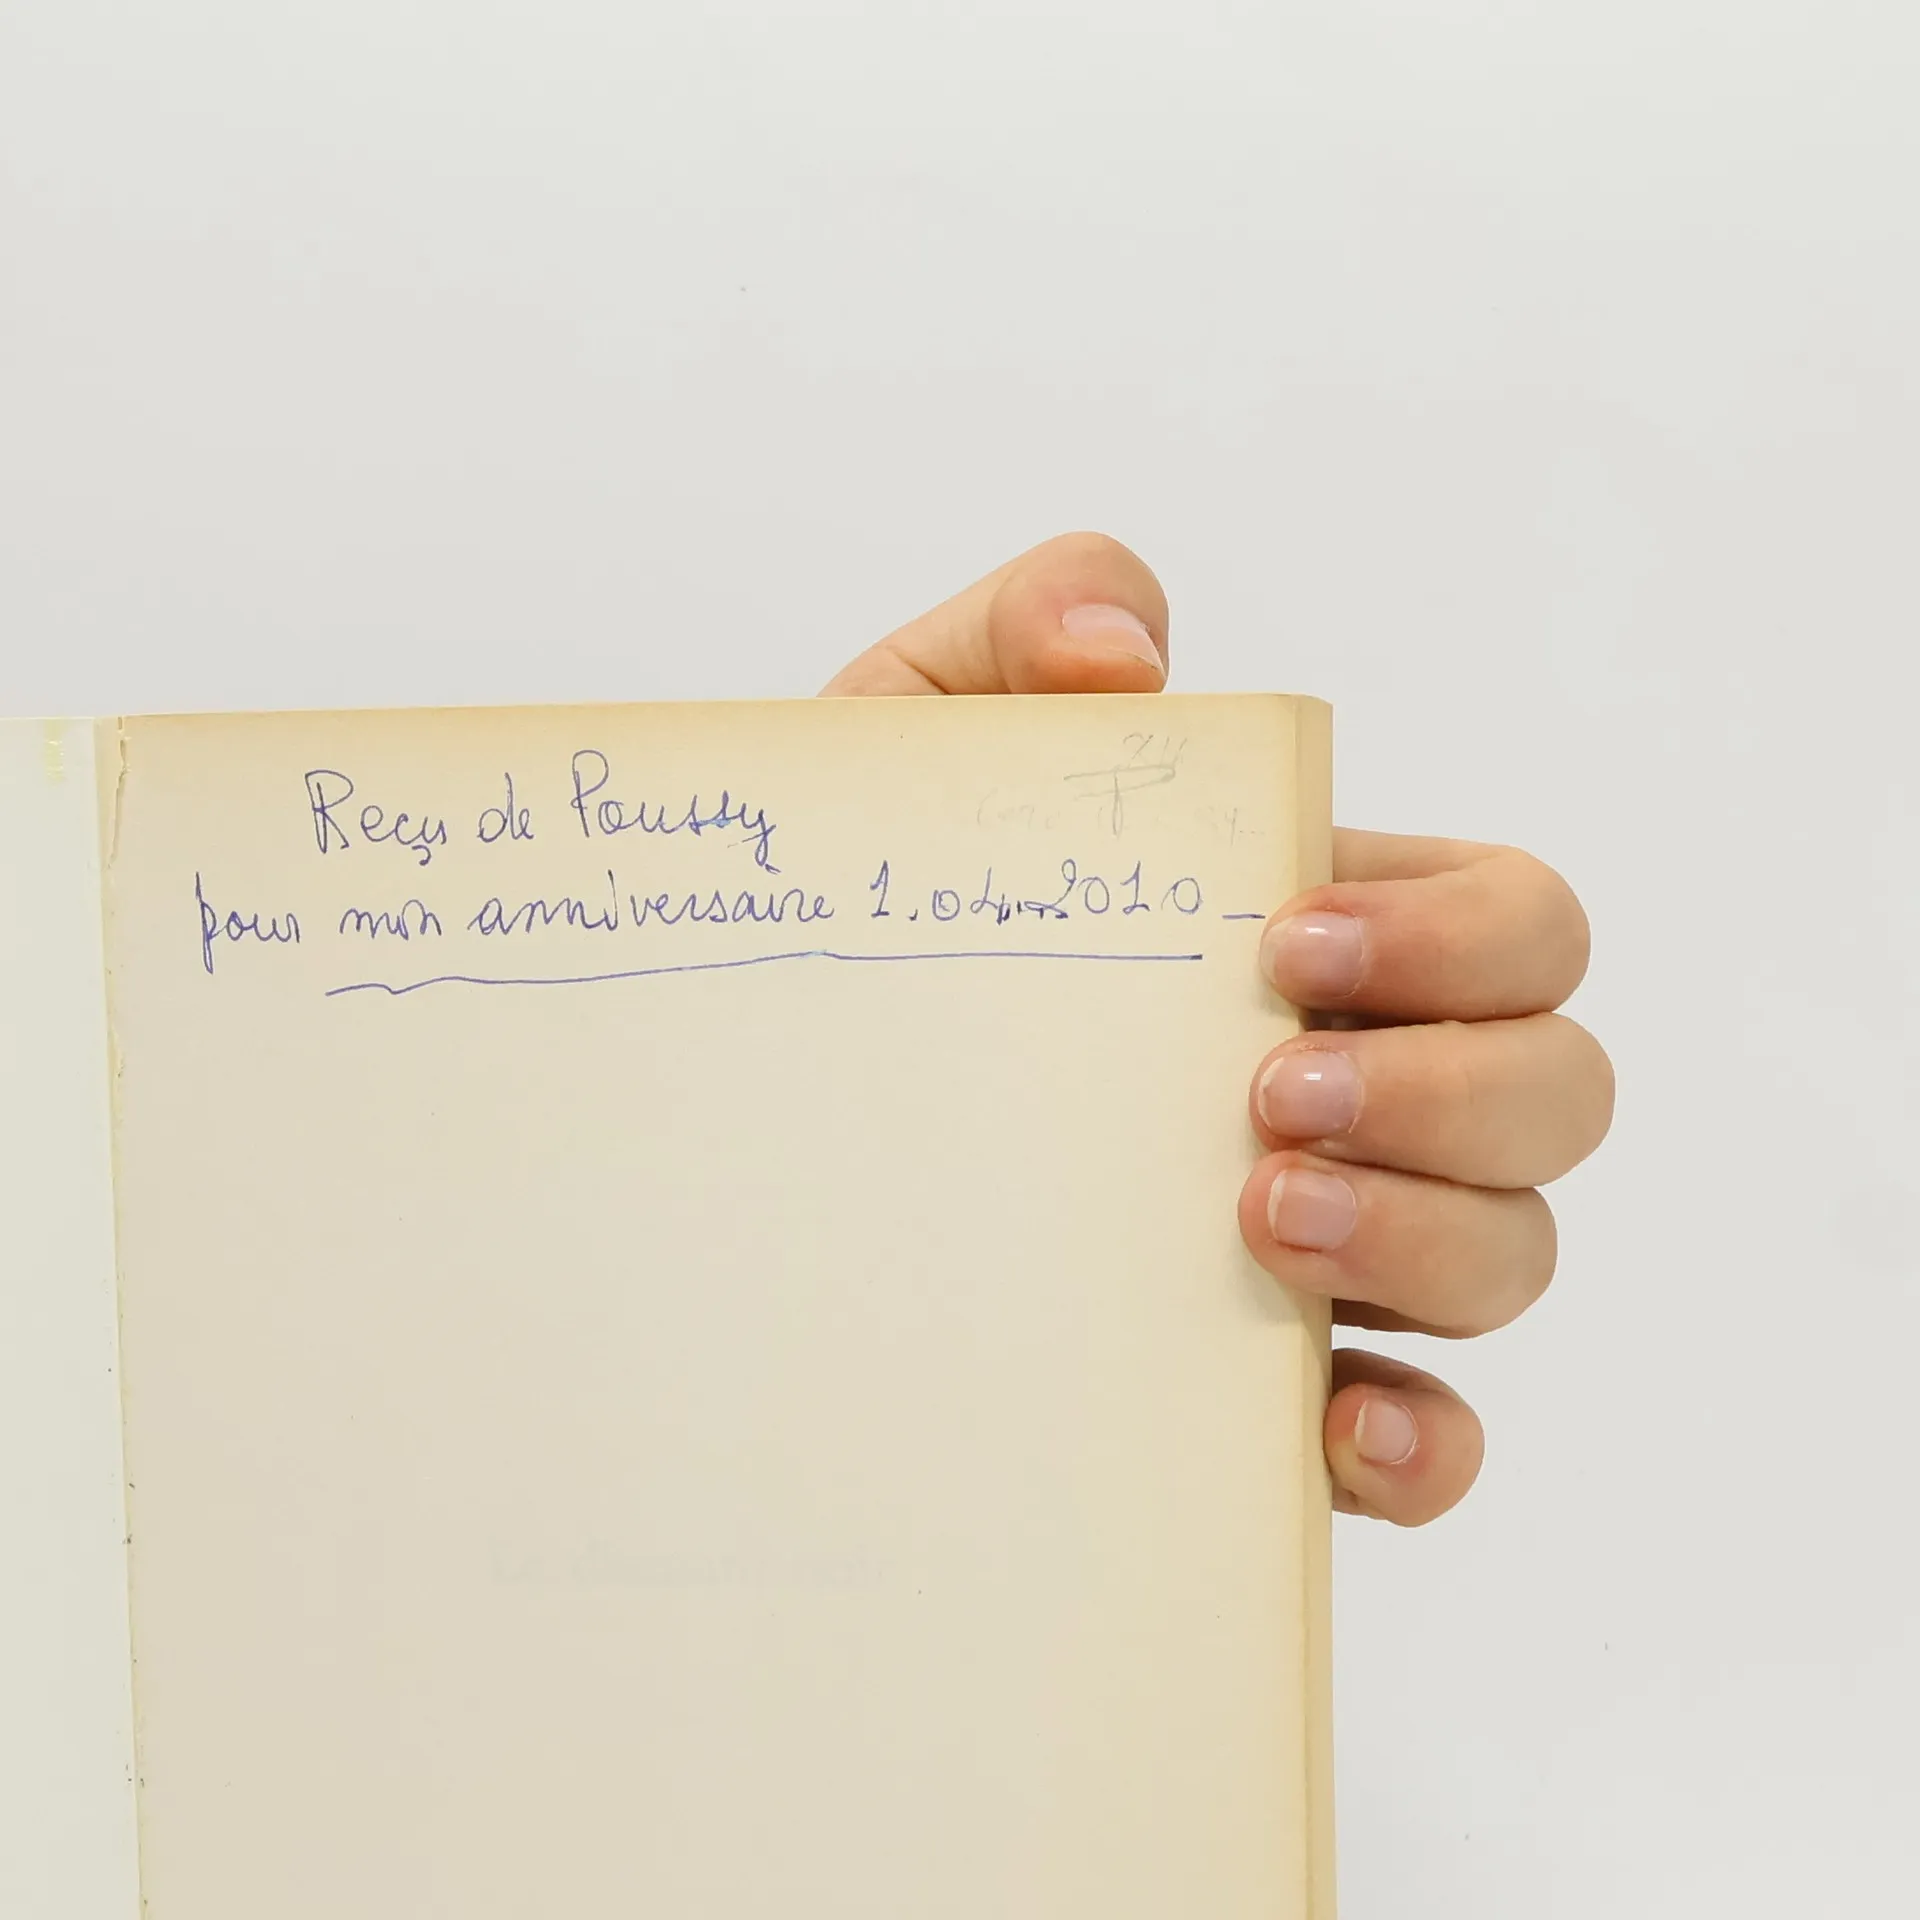 Reçu de Poussy
pour mon anniversaire 1.04.2010_